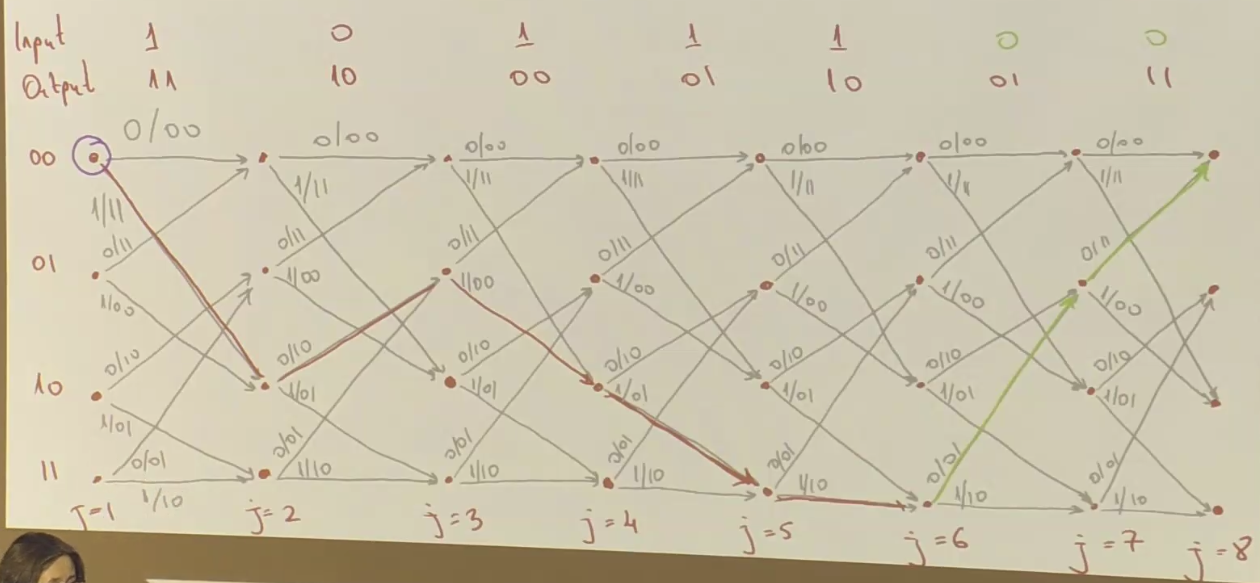 Input 1 0 1 1 1 0 0
Output 11 10 00 01 10 01 11
0/00 0/00 0/00 0/00 0/00 0/00 0/00
00
1/11 1/11 1/11 1/11 1/11 1/11 1/11
0/11 0/11 0/11 0/11 0/11 0/11 0/11
01
1/00 1/00 1/00 1/00 1/00 1/00 1/00
0/10 0/10 0/10 0/10 0/10 0/10 0/10
10
1/01 1/01 1/01 1/01 1/01 1/01 1/01
0/01 0/01 0/01 0/01 0/01 0/01 0/01
11
1/10 1/10 1/10 1/10 1/10 1/10 1/10
J=1 j=2 j=3 j=4 j=5 j=6 j=7 j=8